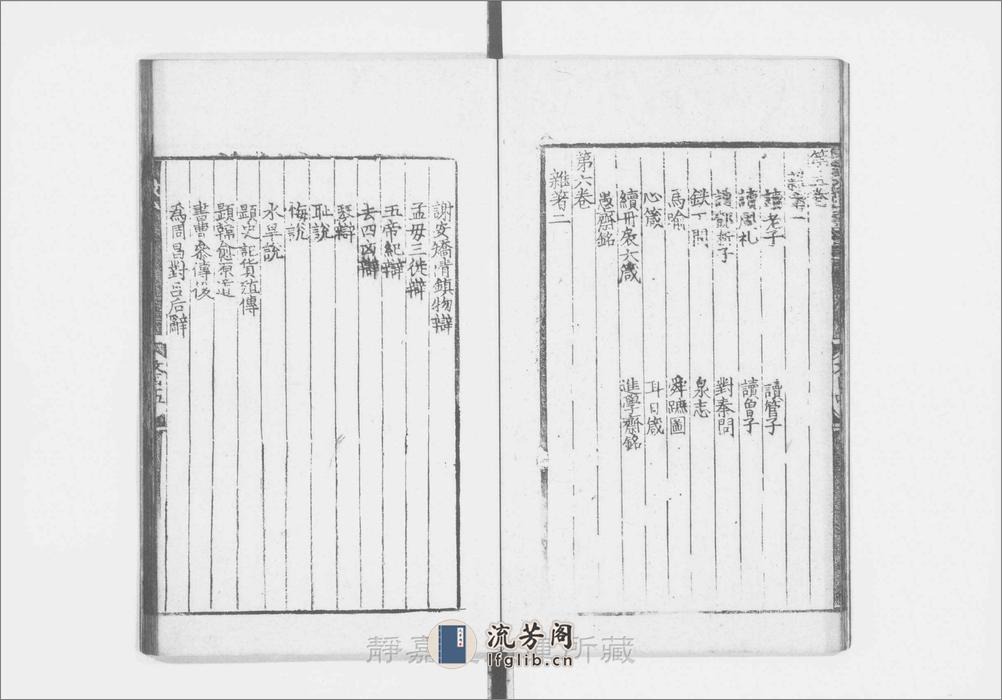 第五卷
雜著一
讀老子　讀管子
讀周礼　讀曾子
讀鄧析子　對秦問
鉄丁問　泉志
馬喻　舜蹠圖
心箴　耳目箴
續丹扆六箴　進學齋銘
愚齋銘
第六卷
雜著二
謝安矯情鎮物辯
孟母三徙辯
五帝紀辯
去四凶辯
琴辯
恥說
悔說
水旱說
題史記貨殖傳
題韓愈原道
書曹參傳後
為周昌對呂后辭
靜嘉 所藏
流芳阁
lfglib.cn